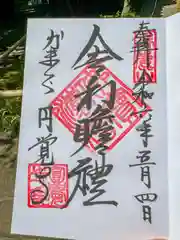 奉拝 令和六年五月四日
舎利瞻禮
かまくら 円覚寺